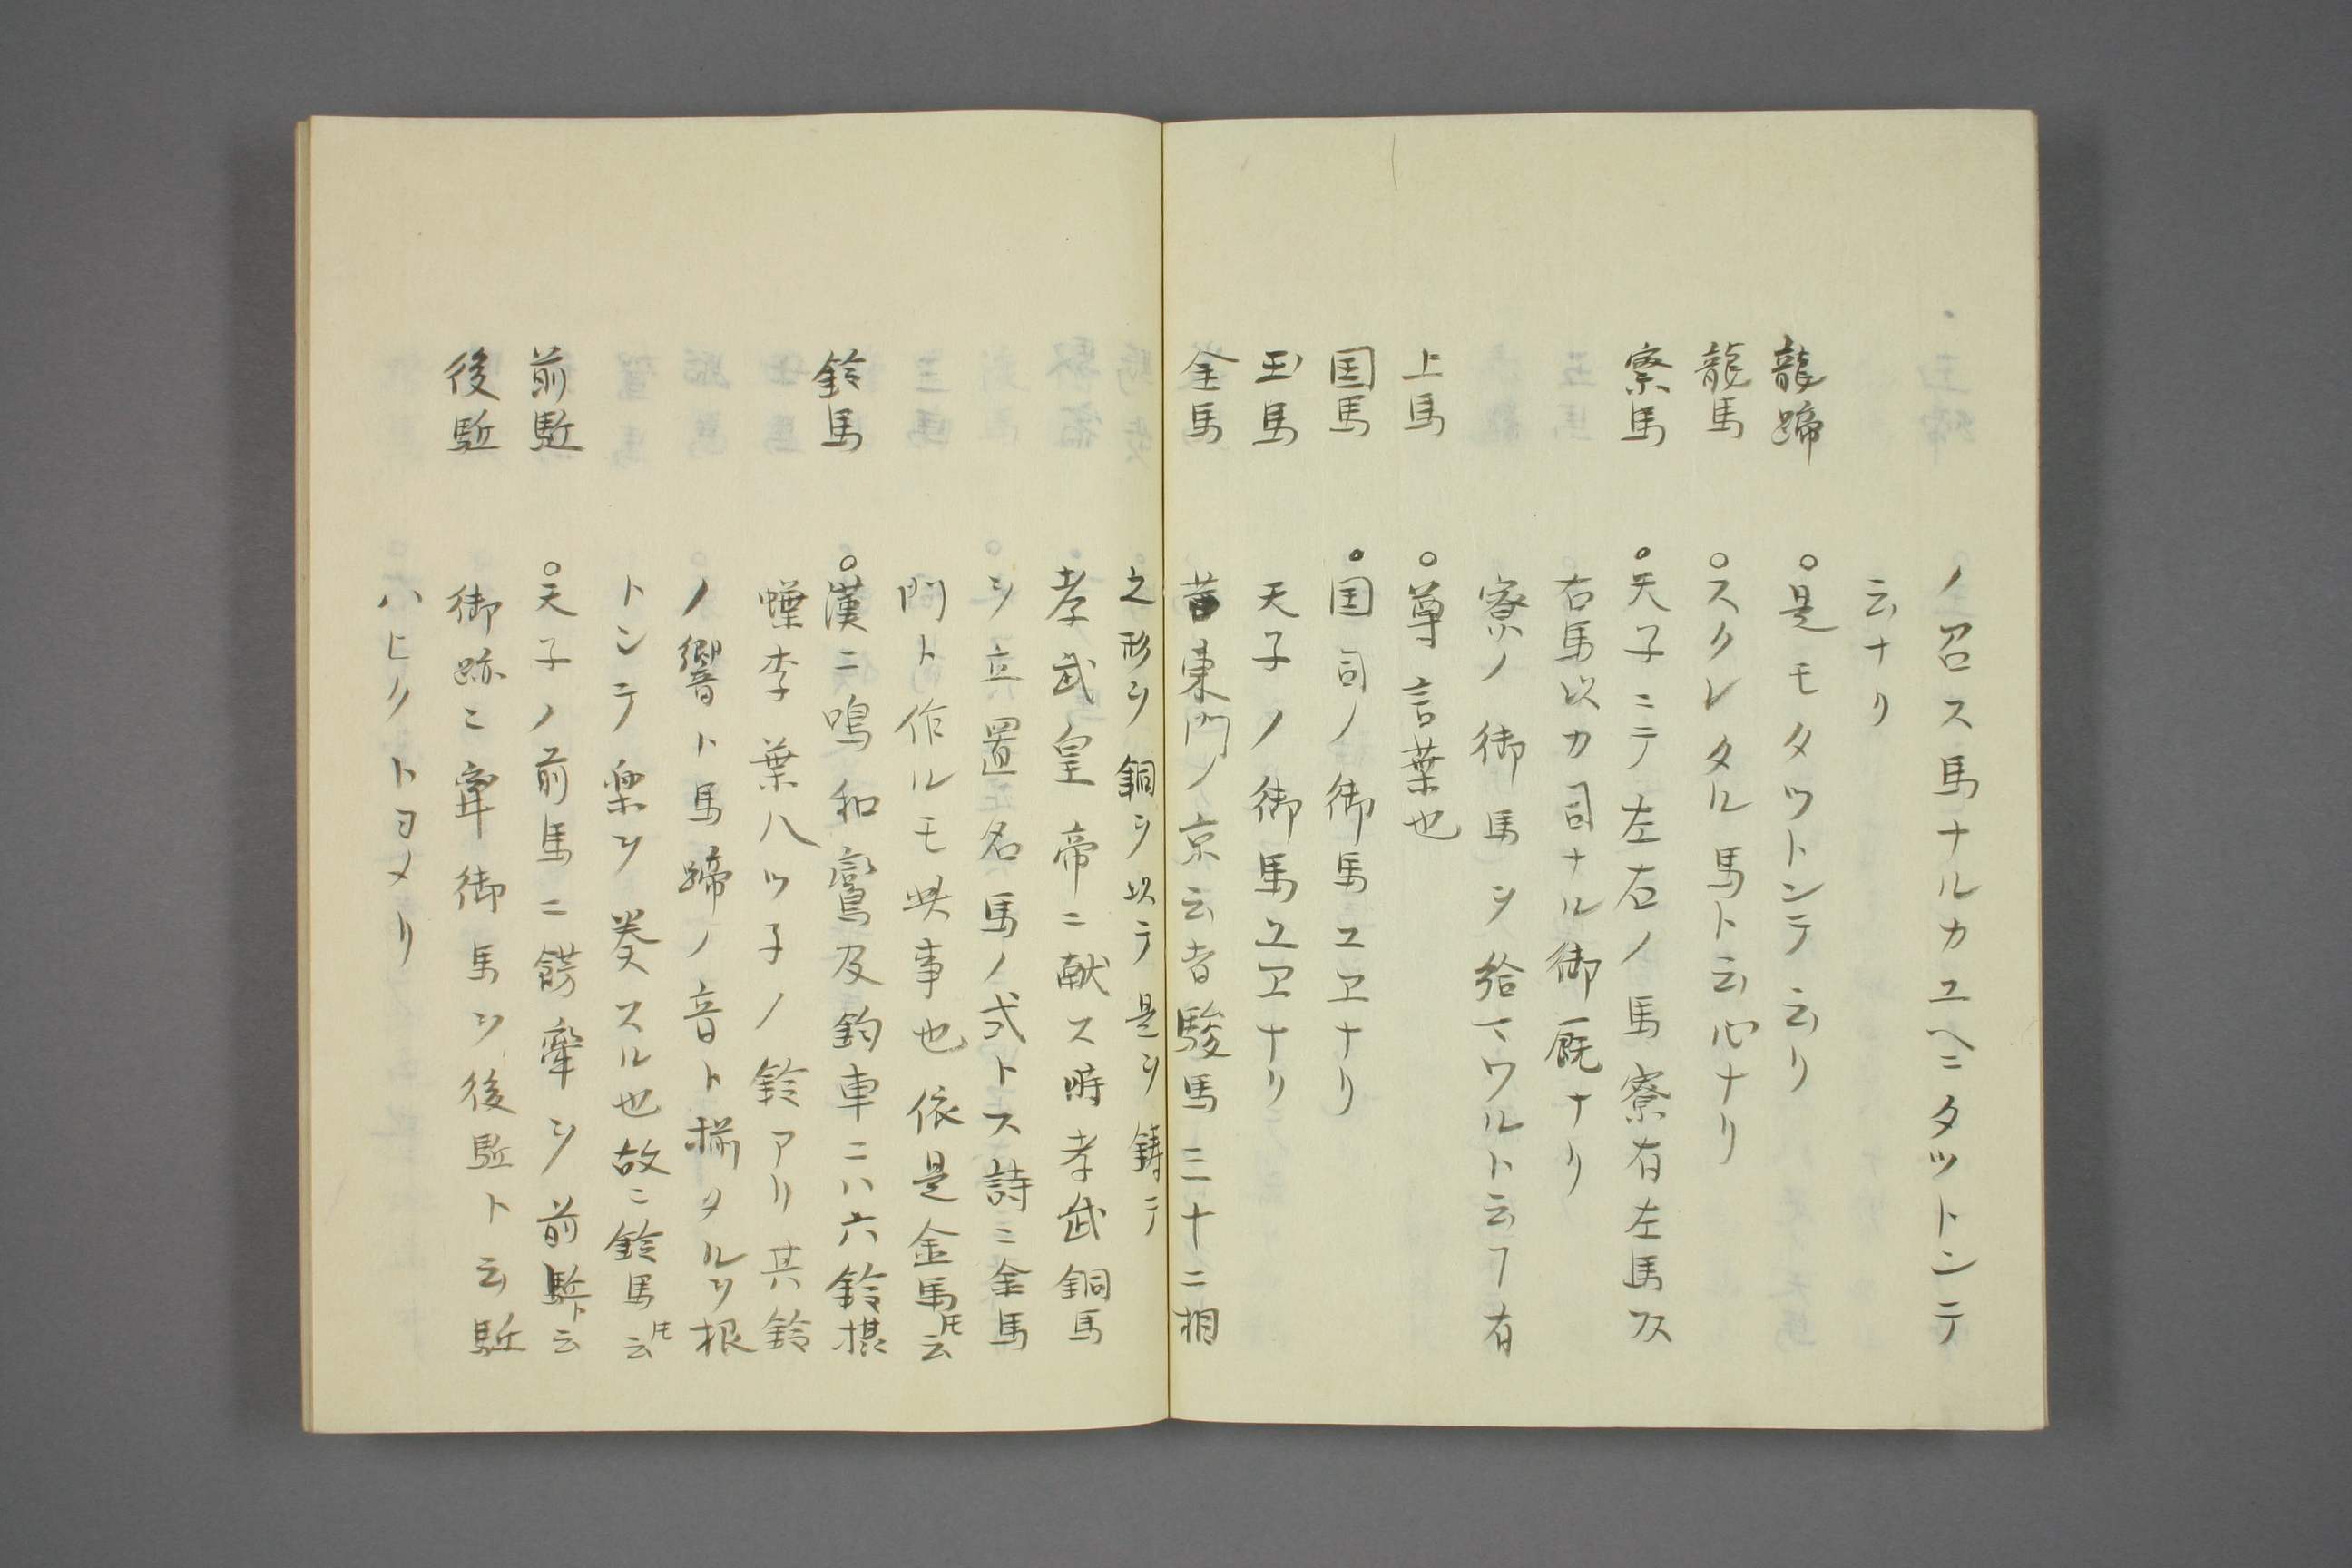 ノ召ス馬ナルカユヘニタットンテ
云ナリ
龍蹄 ○是モタットンテ云リ
龍馬 ○スクレタル馬ト云心ナリ
寮馬 ○天子ニテ左右ノ馬寮有左馬ス
右馬以カ司ナル御厩ナリ
寮ノ御馬ヲ給マワルト云ヿ有
上馬 ○尊言葉也
国馬 ○国司ノ御馬ユヱナリ
玉馬 天子ノ御馬ユヱナリ
金馬 昔東門ノ京云者駿馬三十二相
之形ヲ銅ヲ以テ是ヲ鋳テ
孝武皇帝ニ献ス時孝武銅馬
ヲ立置名馬ノ式トス詩ニ金馬
門ト作ルモ此事也依是金馬トモ云
鈴馬 ○漢ニ鳴和鸞及鈞車ニハ六鈴
李葉八ツ子ノ鈴アリ其鈴
ノ響ト馬蹄ノ音ト揃タルヲ根
トシテ楽ヲ奏スル也故ニ鈴馬トモ云
前駈 ○天子ノ前馬ニ餝牽ヲ前駈ト云
後駈 御跡ニ牽御馬ヲ後駈ト云駈
ハヒクトヨメリ